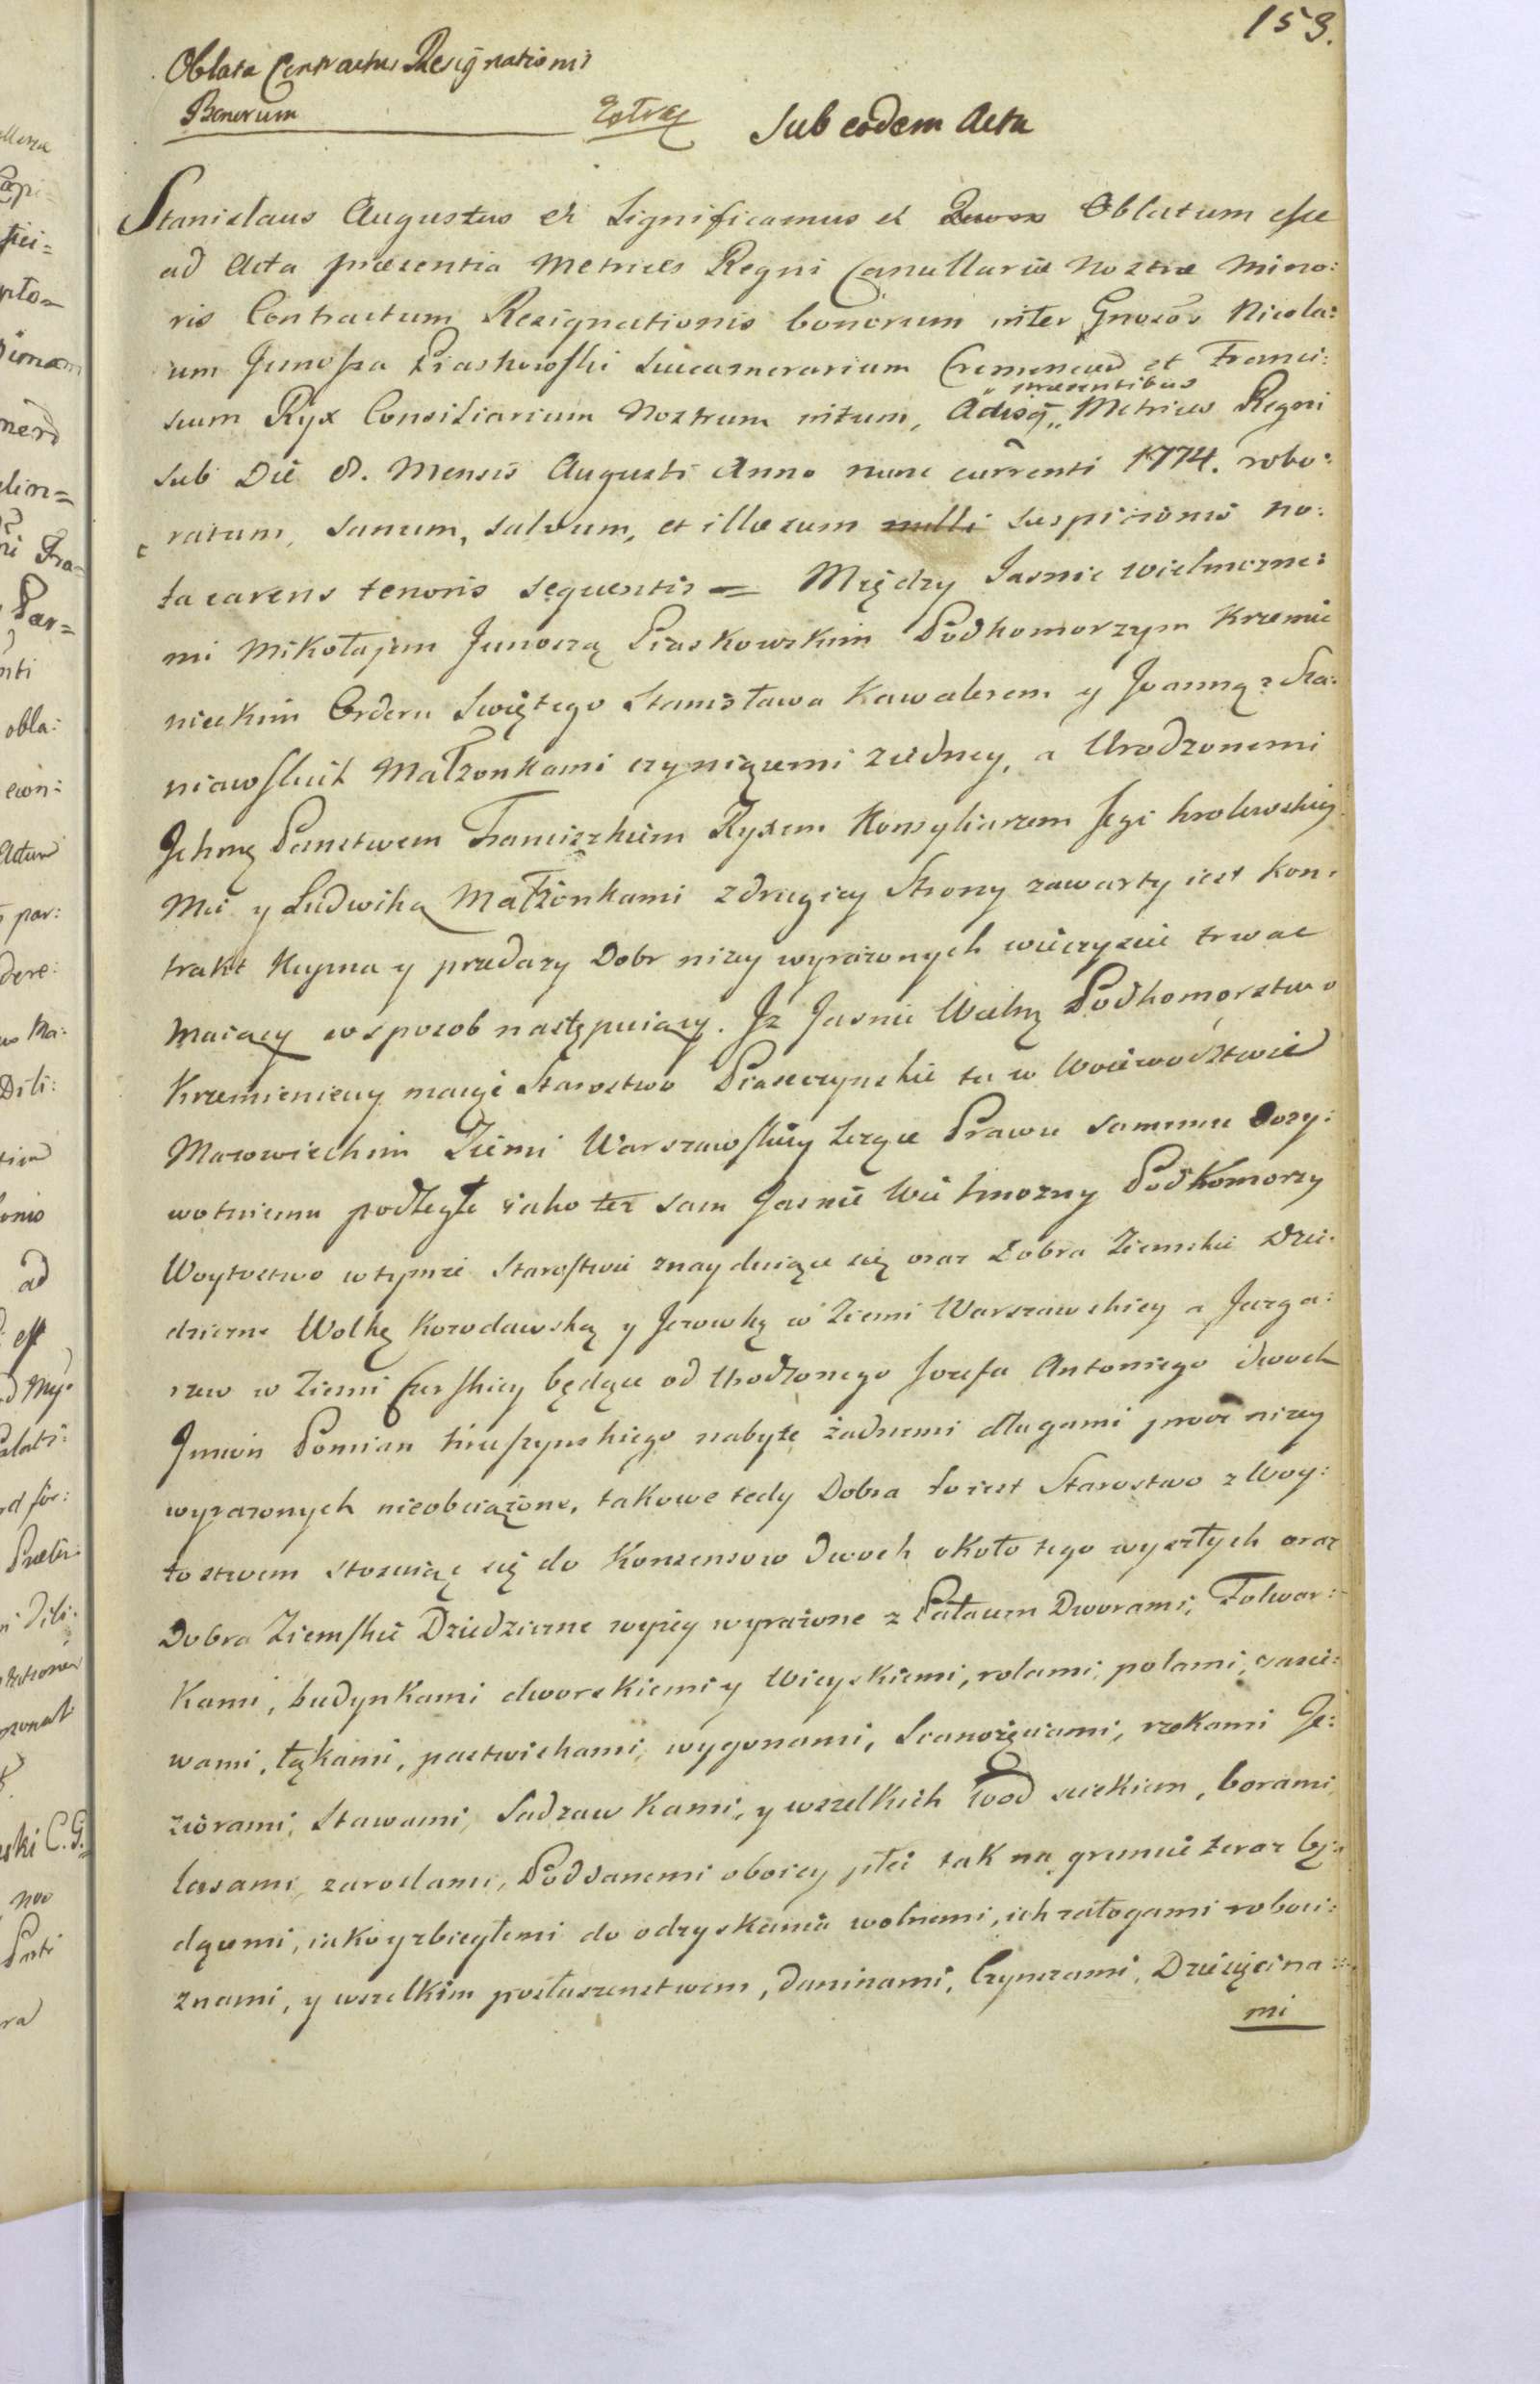 153.
Oblata Contractus Resignationis
Bonorum Extraz Sub eodem Actu
Stanislaus Augustus et Significamus et Oblatum esse
ad Acta præsentia Metrices Regni Cancellariæ Nostræ Mino:
ris Contractum Resignationis bonorum inter Gnosos Nicola:
um Junosza Piaskowski Succamerarium Cremenecen et Franci:
scum Ryx Consiliarium Nostrum initum, Actisq præsentibus Metrices Regni
sub Die 8. Mensis Augusti Anno nunc currenti 1774. robo:
ratum, sanum, salvum, et illæsum nulli suspicionis no:
ta carens tenoris sequentis = Między Jasnie wielmozne:
mi Mikołajem Junoszą Piaskowskim Podkomorzym Krzemie
nieckim Orderu Swiętego Stanisława Kawalerem y Joanną z Sta:
niawskich Małzonkami czyniącemi ziedney, a Urodzonemi
Jchmę Panstwem Franciszkiem Ryxem Konsyliarzem Jego Krolewskiey
Mci y Ludwiką Małżonkami zdrugiey Strony zawarty iest Kon:
trakt Kupna y przedazy Dobr nizey wyrazonych wieczyscie trwac
maiący wsposob następuiący. Jz Jasnie Wielm Podkomorstwo
Krzemienieccy maiąc Starostwo Piaseczynskie tu w Woiewodztwie
Mazowieckim Ziemi Warszawskiey lezące Prawu samemu Dozy:
wotniemu podległe iako też sam Jasnie Wielmozny Podkomorzy
Woytostwo wtymze Starostwie znayduiące się oraz Dobra Ziemskie Dzie:
dziczne Wolkę Kozodawską y Jerowkę w Ziemi Warszawskiey a Jazga:
rzew w Ziemi Czerskiey będące od Urodzonego Jozefa Antoniego dwoch
Jmion Pomian Kruszynskiego nabyte żadnemi długami procz nizey
wyrazonych nieobciążone, takowe tedy Dobra to iest Starostwo z Woy:
tostwem stosuiąc się do Konsensow dwoch około tego wyszłych oraz
Dobra Ziemskie Dziedziczne wyzey wyrażone z Pałacem Dworami, Folwar:
Kami, budynkami dworskiemi y Wieyskiemi, rolami, polami, zasie:
wami, łąkami, pastwiskami, wygonami, Sianożęciami, rzekami Je:
ziorami, Stawami, Sadzawkami, y wszelkich wod sciekiem, borami,
lasami, zaroslami, Poddanemi oboiey płci tak na gruncie teraz bę:
dącemi, iako y zbiegłemi do odzyskania wolnemi, ich załogami roboci:
znami, y wszelkim posłuszenstwem, daninami, Czynszami, Dziesięcina:
mi